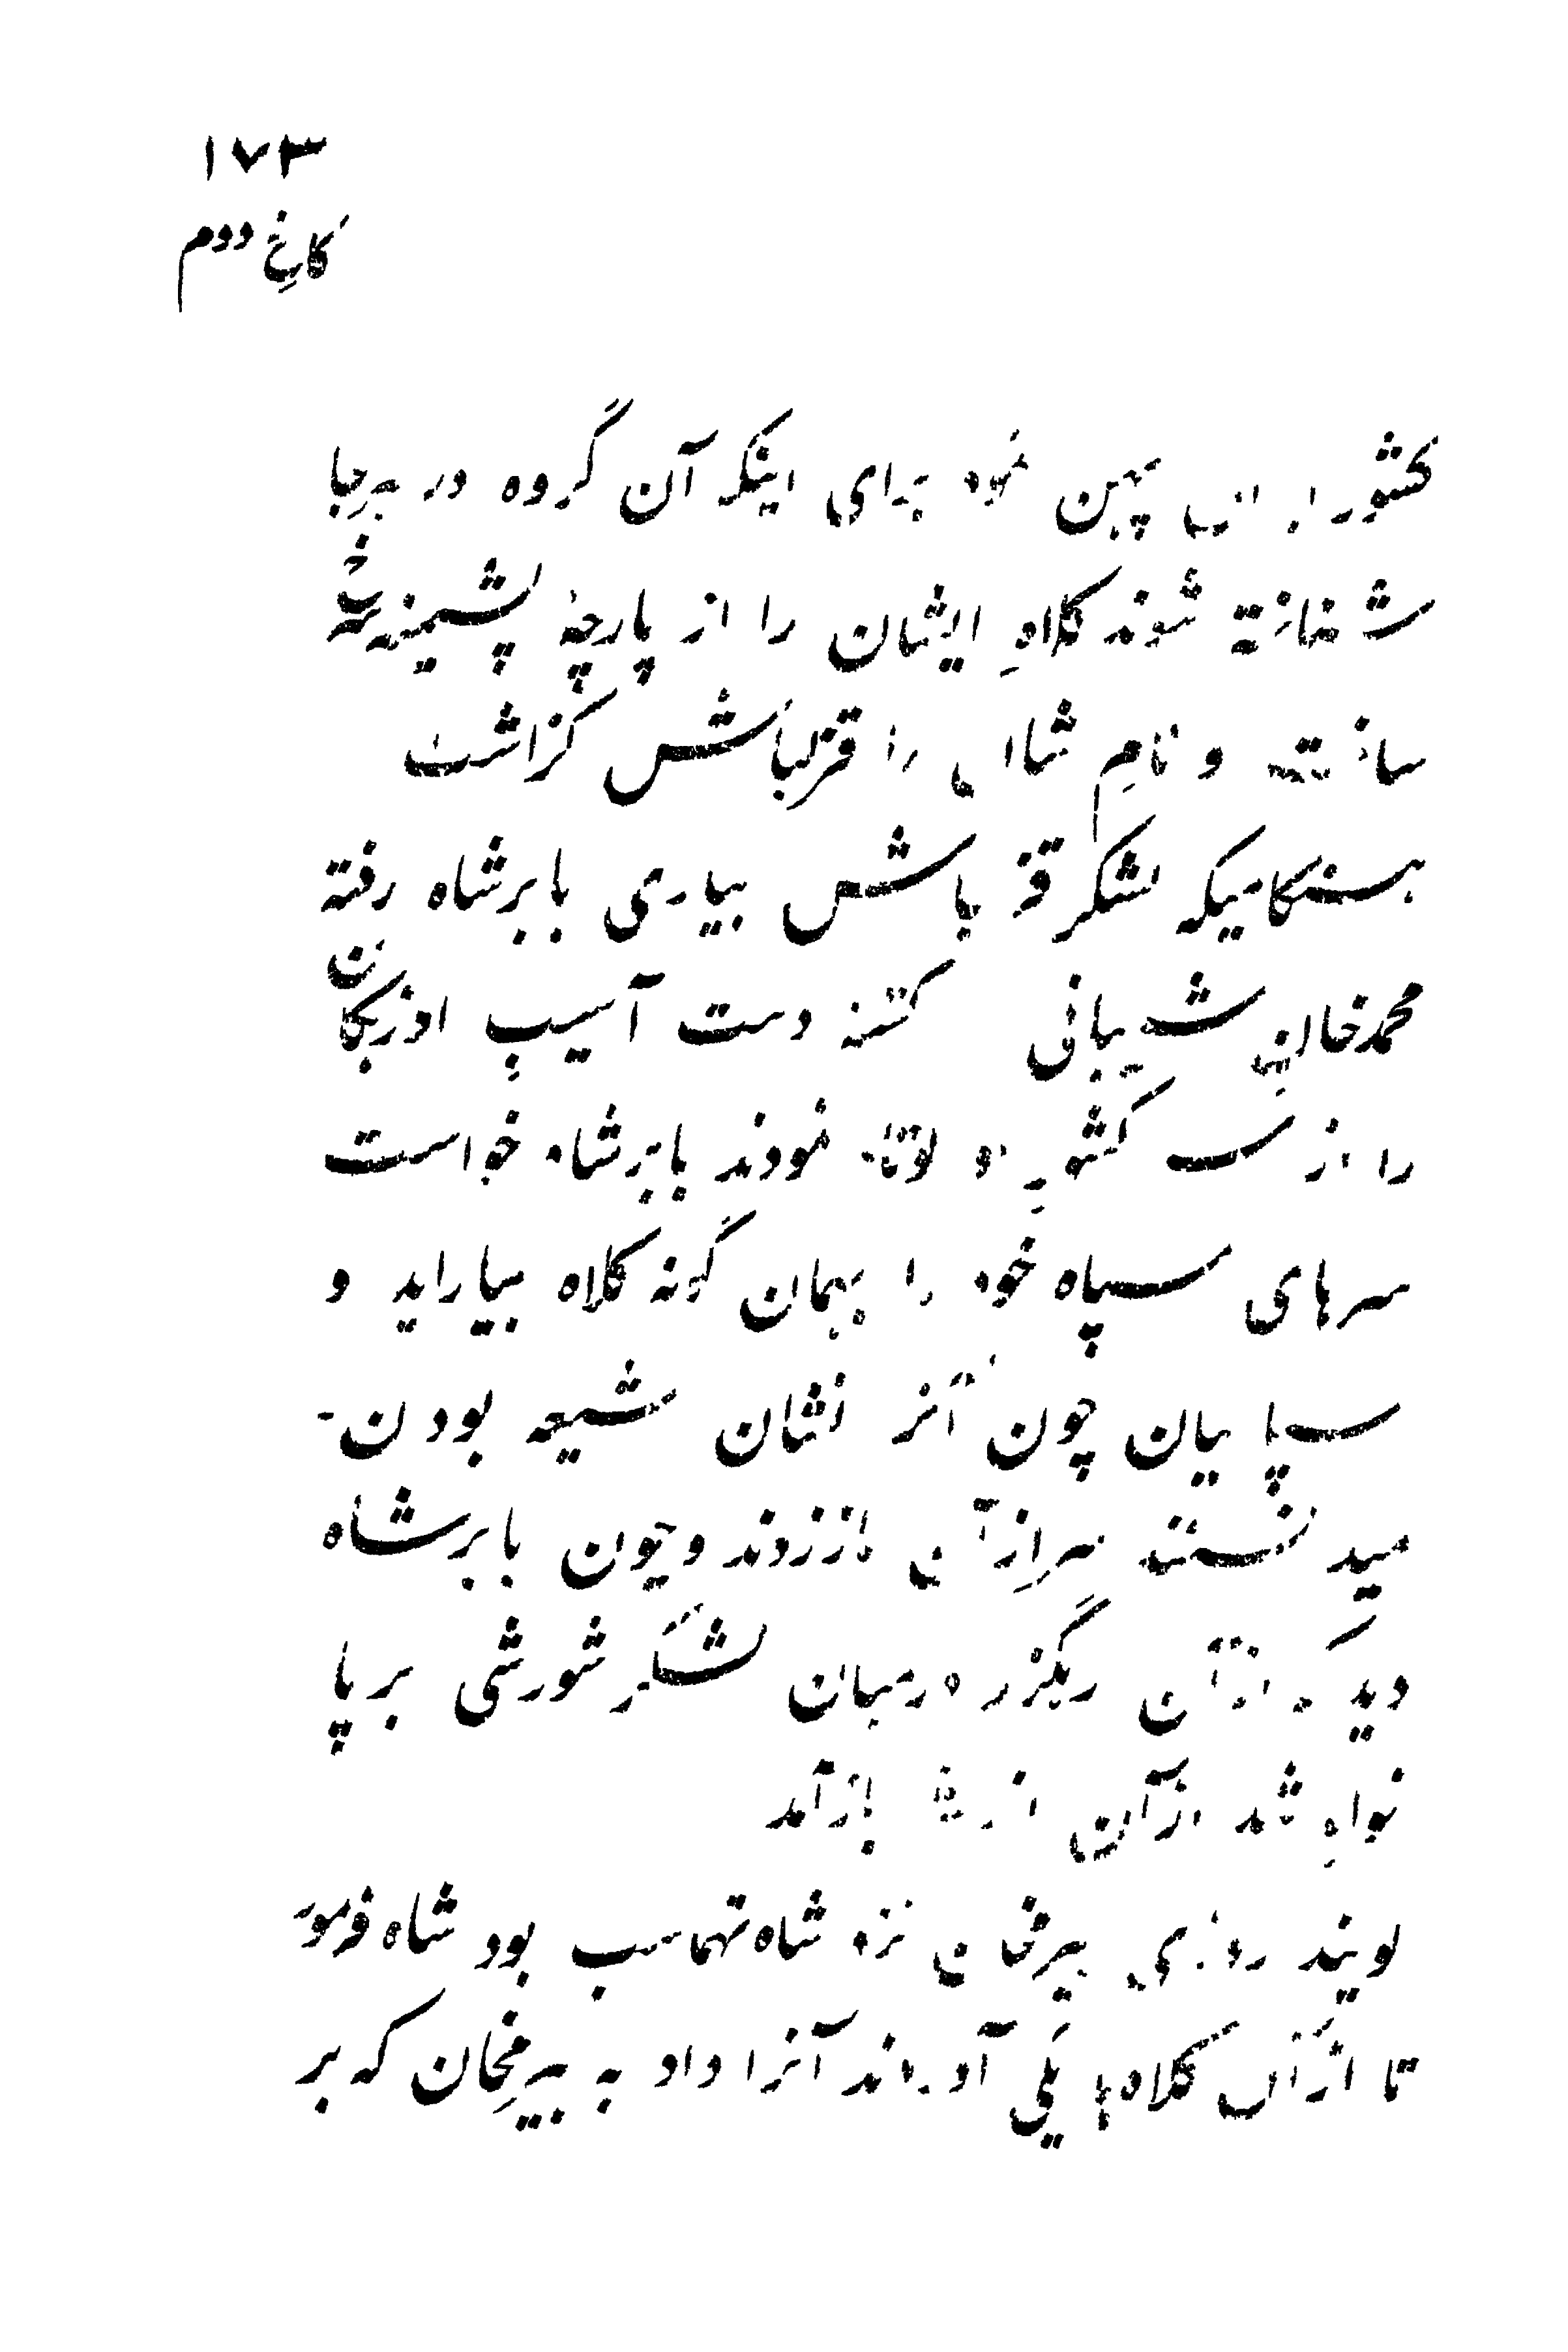 ۱۷۳
کاخِ دوم
کشور ایران پهن نمود برای اینکه آن گروه در هرجا
شناخته شوند کلاهِ ایشان را از پارچهٔ پشمینه سرخ
ساخته و نامِ شان را قزلباش گزاشت
هنگامیکه لشکر قزلباش بیاری بابرشاه رفته
محمدخان شیبانی کشته دست آسیبِ اوزبکان
را از کشورِ او کوتاه نمودند بابرشاه خواست
سرهای سپاه خود را بهمان گونه کلاه بیاراید و
سپاهیان چون آنرا نشان شیعه بودن
میدانستند سر از آن باز زدند و چون بابرشاه
دید که از آن رهگذر درمیان لشگر شورشی برپا
خواهد شد از آن اندیشه باز آمد
گویند روزی بیرمخان نزد شاه تهماسب بود شاه فرمود
تا از آن کلاه‌ها یکی آوردند آنرا داد به بیرمخان که بر